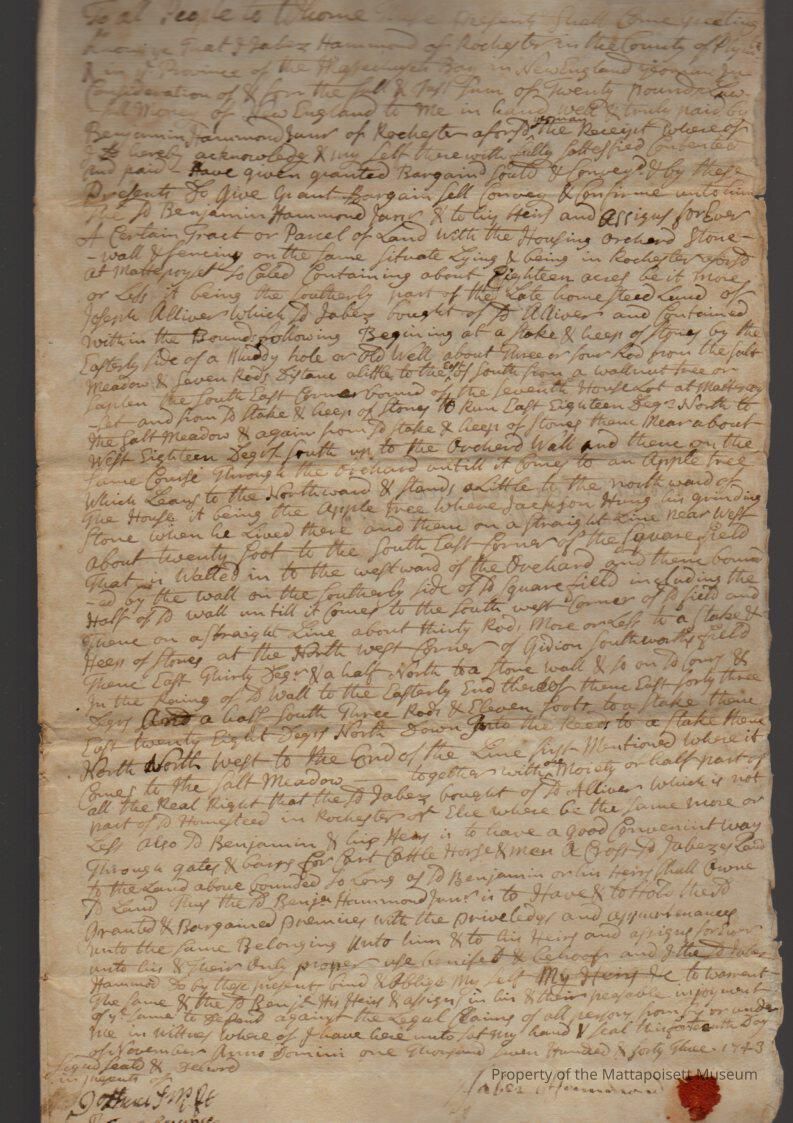 To all People to Whome These Presents Shall Come greeting
Know ye That I Jabez Hammond of Rochester in the County of
& in ye Province of the Massachusets Bay in New England yeoman In
Consideration of & for the full & Just Sum of Twenty Pounds Law
full Money of New England to Me in hand well & truly paid by
Benjamin Hammond Junr of Rochester aforsd yeoman The Receipt Whereof
I Do hereby acknowledg & my Self therewith fully Sattesfied Contented
and paid Have given granted Bargaind Sould & Conveyd & by these
Presents Do Give Grant Bargain Sell Convey & Confirme unto him
the Sd Benjamin Hammond Junr & to his Heirs and Assigns for Ever
A Certain Tract or Parcel of Land with the Housing Orcherd Stone-
-wall & fencing on the Same Situate Lying & being in Rochester aforsd
at Mattepoyset So Caled Containing about Eighteen acres be it more
or Less it being the Southerly part of the Late homesteed Land of
Joseph Alliver Which Sd Jabez bought of Sd Alliver and Contained
within the Bounds following Begining at a Stake & heep of Stones by the
Easterly Side of a Muddy hole or old Well about Three or four Rod from the Salt
Meadow & Seven Rods Distance a little to the East of South from a wallnut tree or
Saplen the South East Corner bound of the Seventh House Lot at Mattepoy
-set and from Sd Stake & heep of Stones to Run East Eighteen Degrs North to
the Salt Meadow & again from Sd Stake & heep of Stones thence Near about
West Eighteen Degrs South up to the Orcherd Wall and thence on the
Same Course Through the Orchard untill it Comes to an Apple tree
Which Leans to the Northward & Stands a Little to the northward of
the House it being the Apple Tree where Jackson Hung his grinding
Stone when he Lived there and thence on a Straight Line near West
about twenty foot to the South East Corner of the Square field
That is Walled in to the westward of the Orchard and thence bound
-ed by the wall on the Southerly Side of Sd Square field including the
Half of Sd wall untill it Comes to the South west Corner of Sd field and
Thence on a Straight Line about thirty Rods more or Less to a Stake &
Heep of Stones at the North West Corner of Gidion Southworths field
Thence East Thirty Degrs & a half North to a Stone wall & so on Sd Cors &
In the Raing of Sd Wall to the Easterly End thereof thence East forty three
Degrs And a half South Three Rods & Eleven foots to a Stake thence
East twenty Eight Degrs North Down Into the Reeds to a Stake thence
North North West to the End of the Line first Mentioned where it
Comes to the Salt Meadow — together with one Moiety or half part of
all the Real Right that the Sd Jabez bought of Sd Alliver Which is not
part of Sd Homesteed in Rochester or Else where be the Same more or
Less also Sd Benjamin & his Heirs is to have a good Conveniant Way
Through gates & barrs for Cart Cattle Horse & men A Cross Sd Jabezes Land
to the Land above bounded So Long as Sd Benjamin or his Heirs Shall Owne
Sd Land Thus the Sd Benja Hammond Junr is to Have & to Hold the Sd
Granted & Bargained premises with the priveledgs and appurtenances
unto the Same Belonging Unto him & to his Heirs and assigns for Ever
unto his & Their Only proper use benifit & behoof and I the Sd Jabez
Hammond Do by these present bind & Oblige My Self My Heirs &c to warrant
The Same & the Sd Benja His Heirs & assigns in his & their peasable injoyment
of ye Same to Defend against the Legal Claims of all persons from by or under
me in Witness where of I have here unto Set my hand & Seal this Day
of November Anno Domini one Thousand Seven Hundred & forty Three 1743
Signed Seald & Deliverd
in presents of
Jabez Hammond
Property of the Mattapoisett Museum